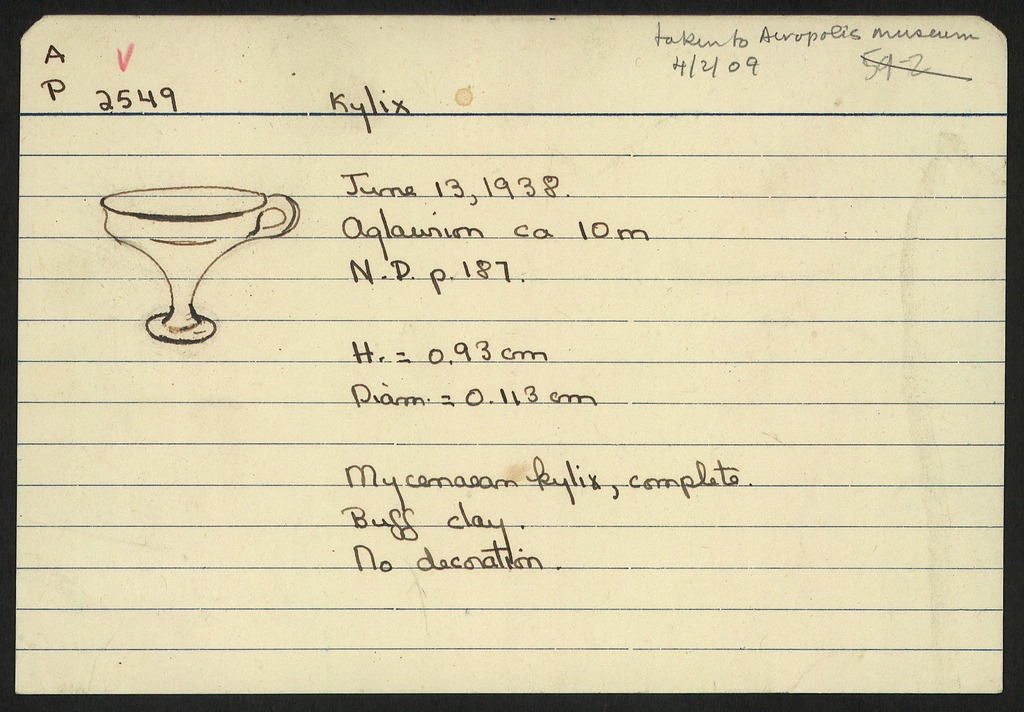 A
P 2549
Kylix
taken to Acropolis museum
4/2/09
June 13, 1938.
Aglaurion ca 10m
N.D. p. 187.
H. = 0.93 cm
Diam. = 0.113 cm
Mycenaean kylix, complete.
Buff clay.
No decoration.